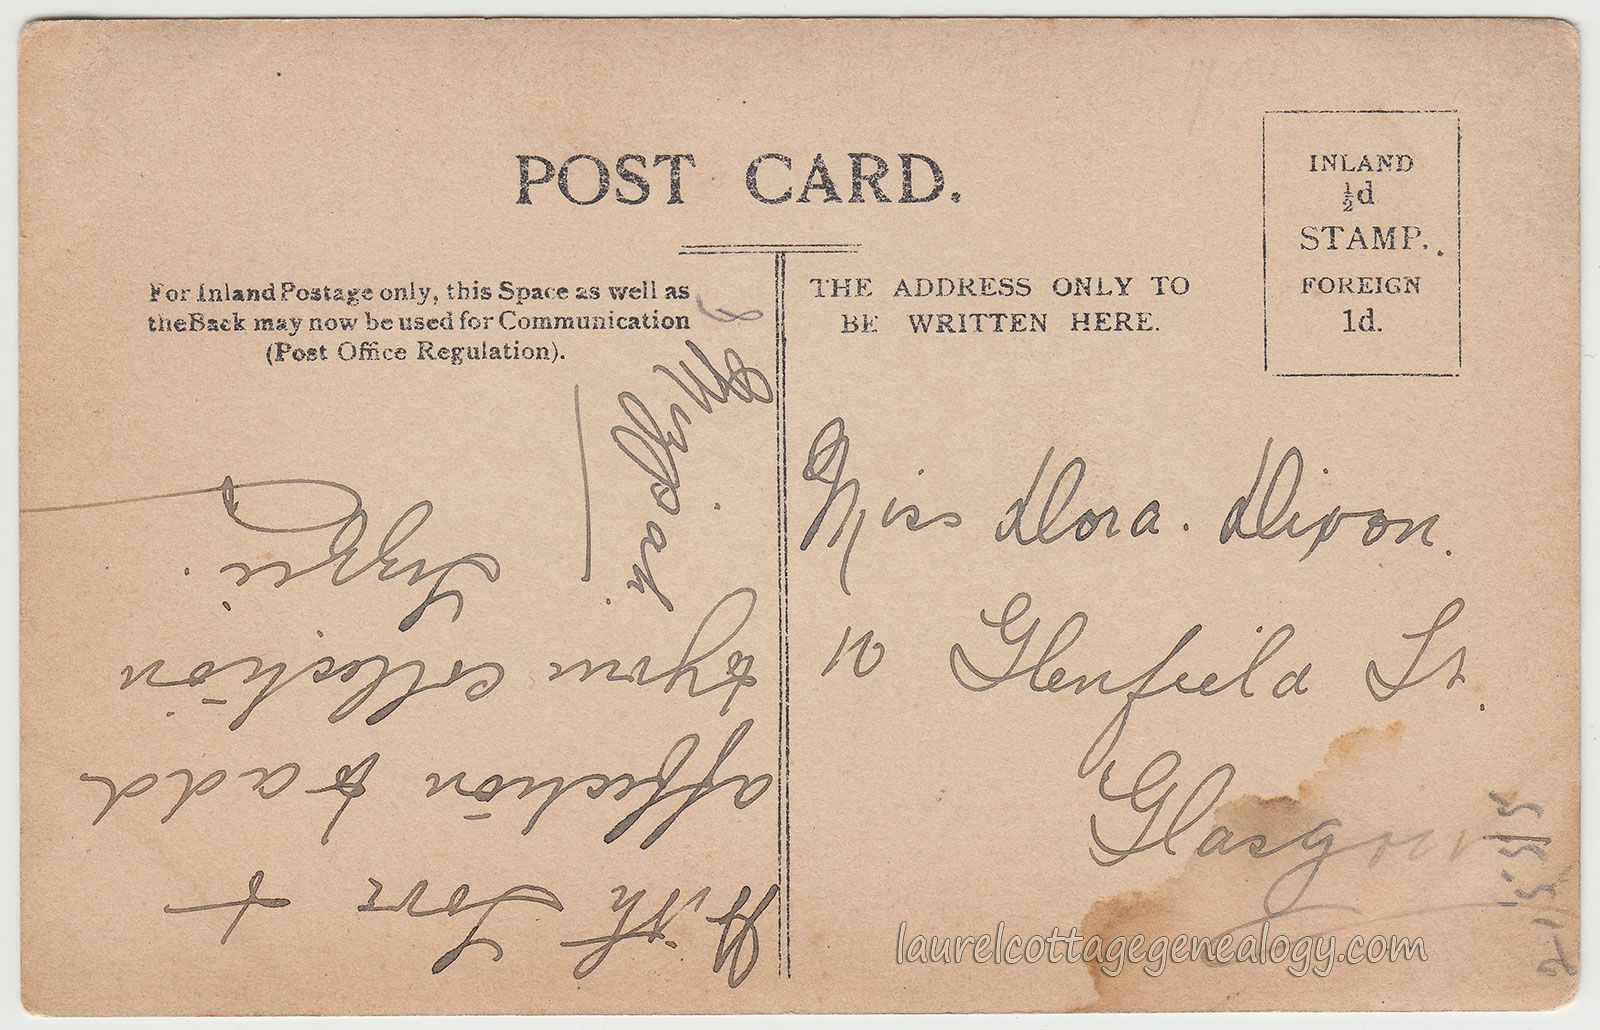 POST CARD.
For Inland Postage only, this Space as well as
the Back may now be used for Communication
(Post Office Regulation).
THE ADDRESS ONLY TO
BE WRITTEN HERE.
INLAND
½d
STAMP.
FOREIGN
1d.
With Love +
affection to add
to your collection
Lizzie.
Mizpah
Miss Dora. Dixon.
10 Glenfield St.
Glasgow
laurelcottagegenealogy.com